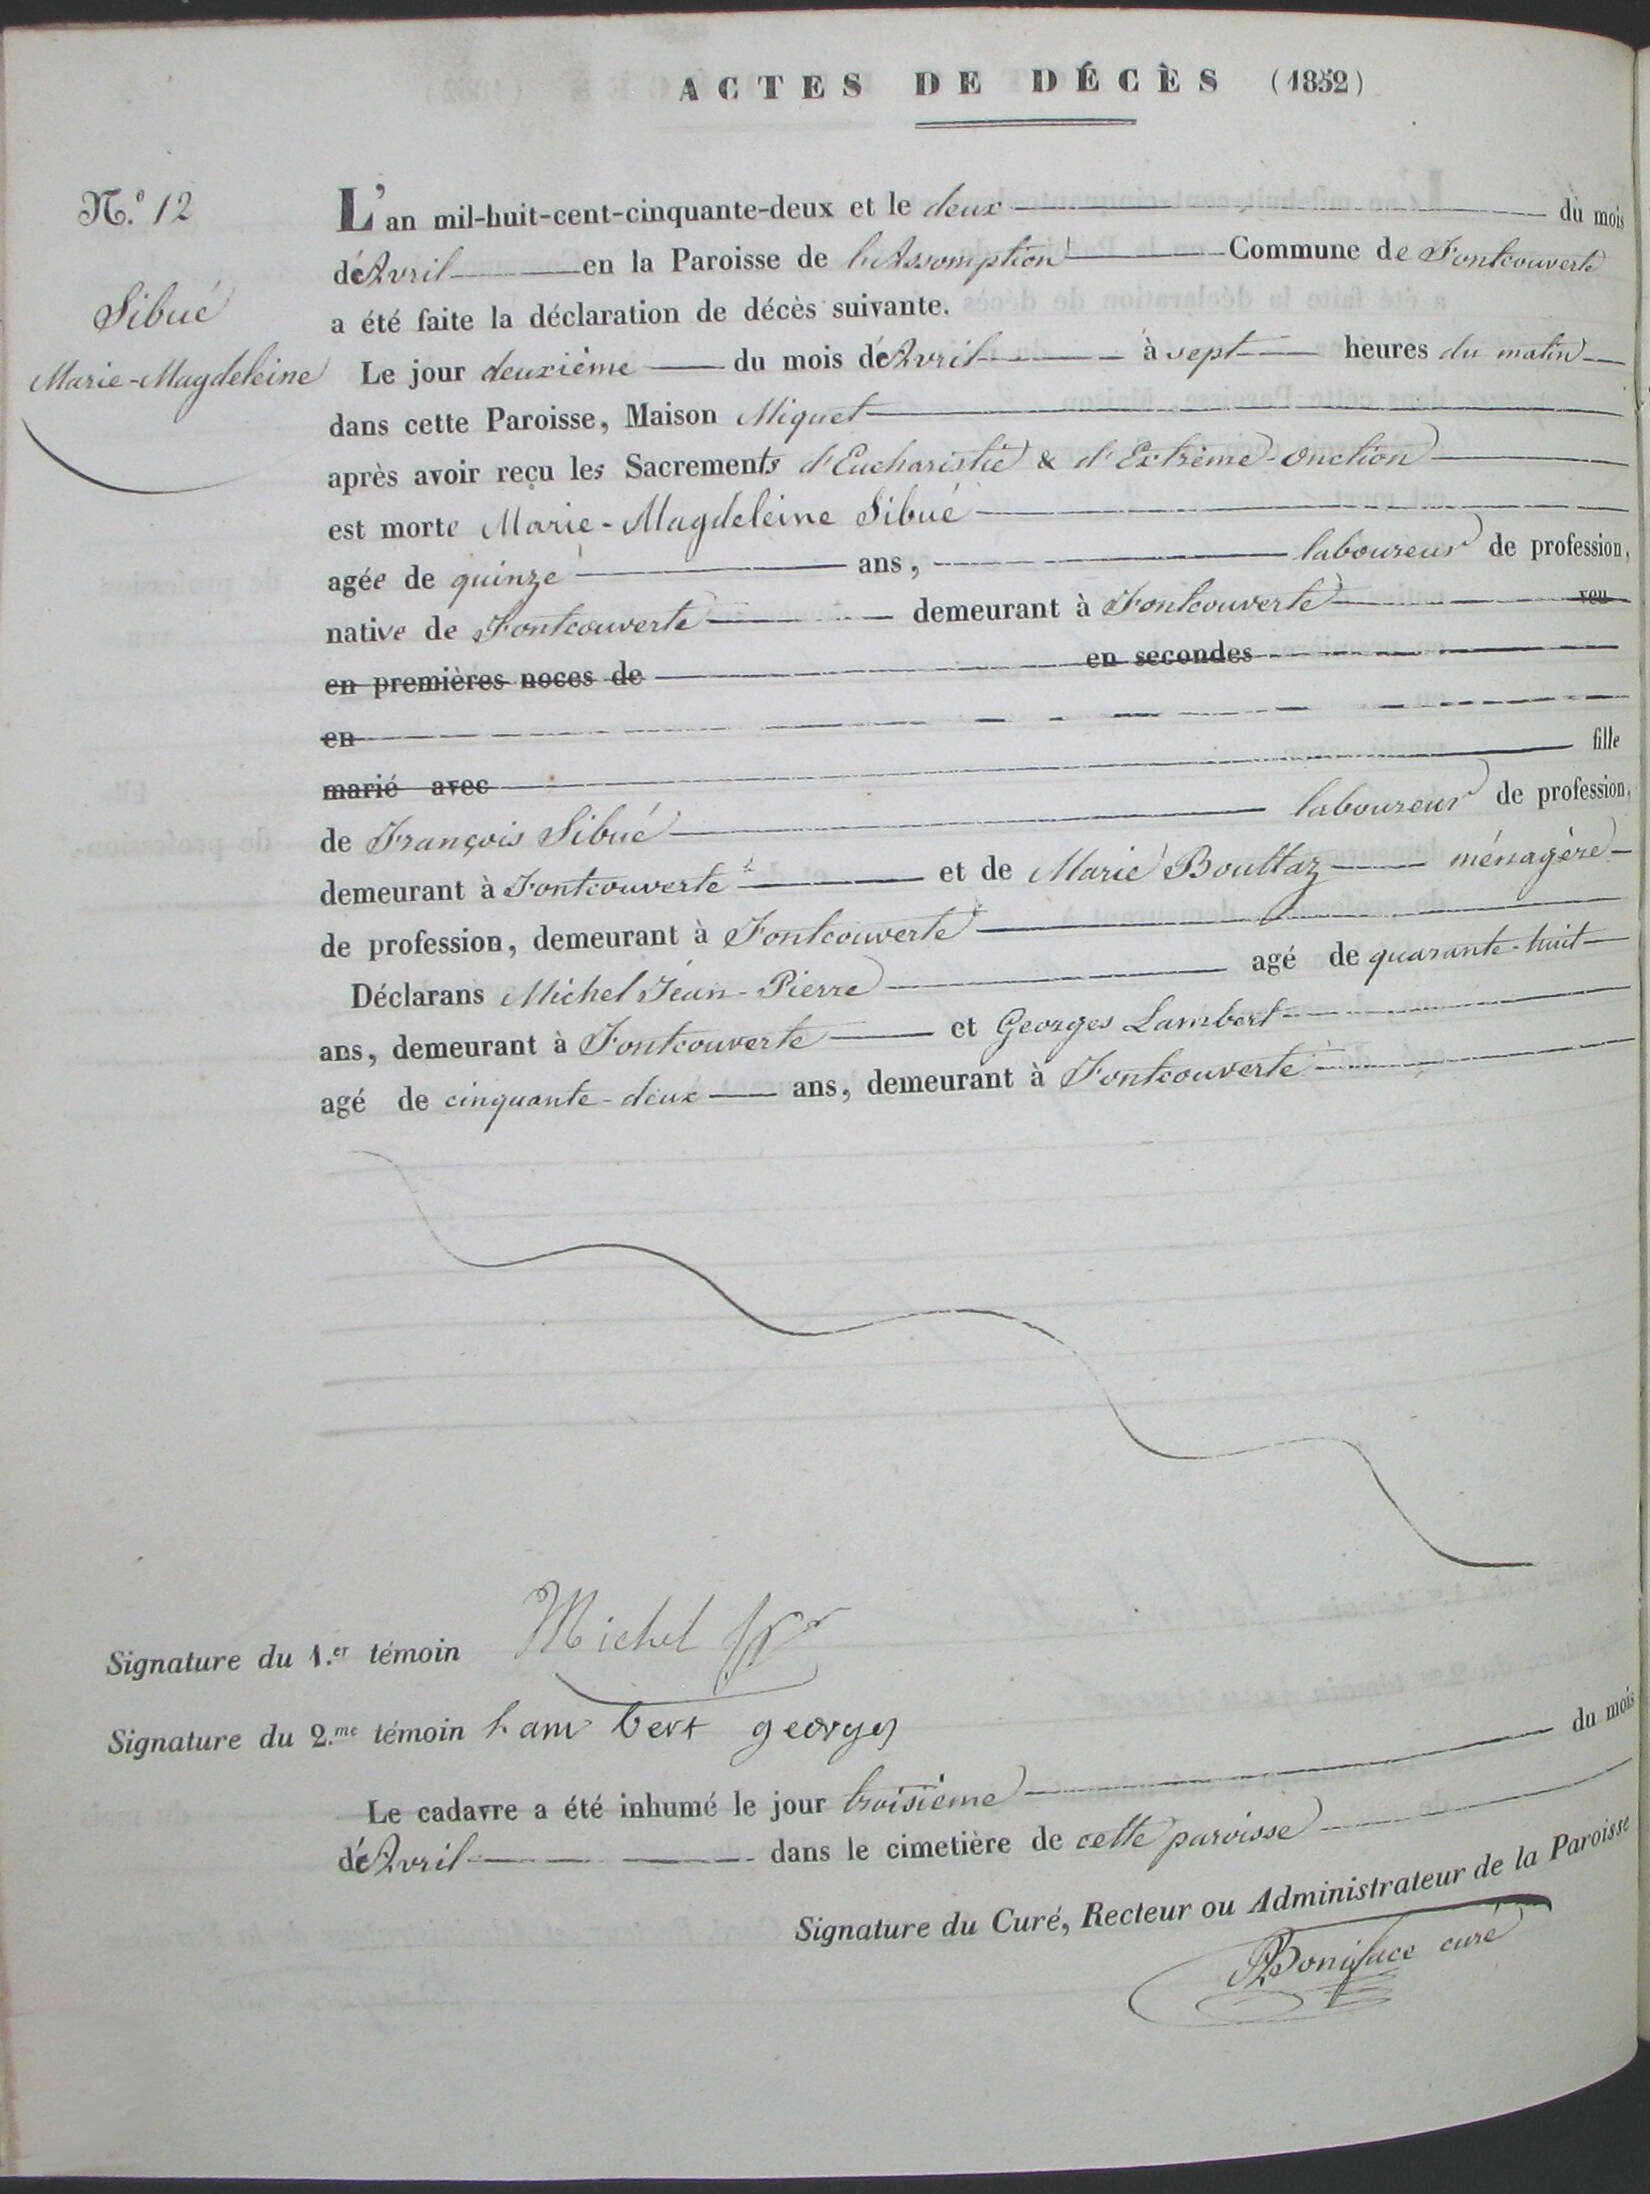 ACTES DE DÉCÈS (1852)
N.º 12
Sibué
Marie-Magdeleine
L'an mil-huit-cent-cinquante-deux et le deux du mois
d'Avril en la Paroisse de l'Assomption Commune de Fontcouverte
a été faite la déclaration de décès suivante.
Le jour deuxième du mois d'Avril à sept heures du matin
dans cette Paroisse, Maison Miquet
après avoir reçu les Sacrements d'Eucharistie & d'Extrême-Onction
est morte Marie-Magdeleine Sibué
agée de quinze ans, laboureur de profession,
native de Fontcouverte demeurant à Fontcouverte veu
en premières noces de en secondes
en
marié avec fille
de François Sibué laboureur de profession,
demeurant à Fontcouverte et de Marie Boultaz ménagère
de profession, demeurant à Fontcouverte
Déclarans Michel Jean-Pierre agé de quarante-huit
ans, demeurant à Fontcouverte et Georges Lambert
agé de cinquante-deux ans, demeurant à Fontcouverte
Signature du 1.er témoin Michel
Signature du 2.me témoin Lambert georges
Le cadavre a été inhumé le jour troisième du mois
d'Avril dans le cimetière de cette paroisse
Signature du Curé, Recteur ou Administrateur de la Paroisse
Boniface curé